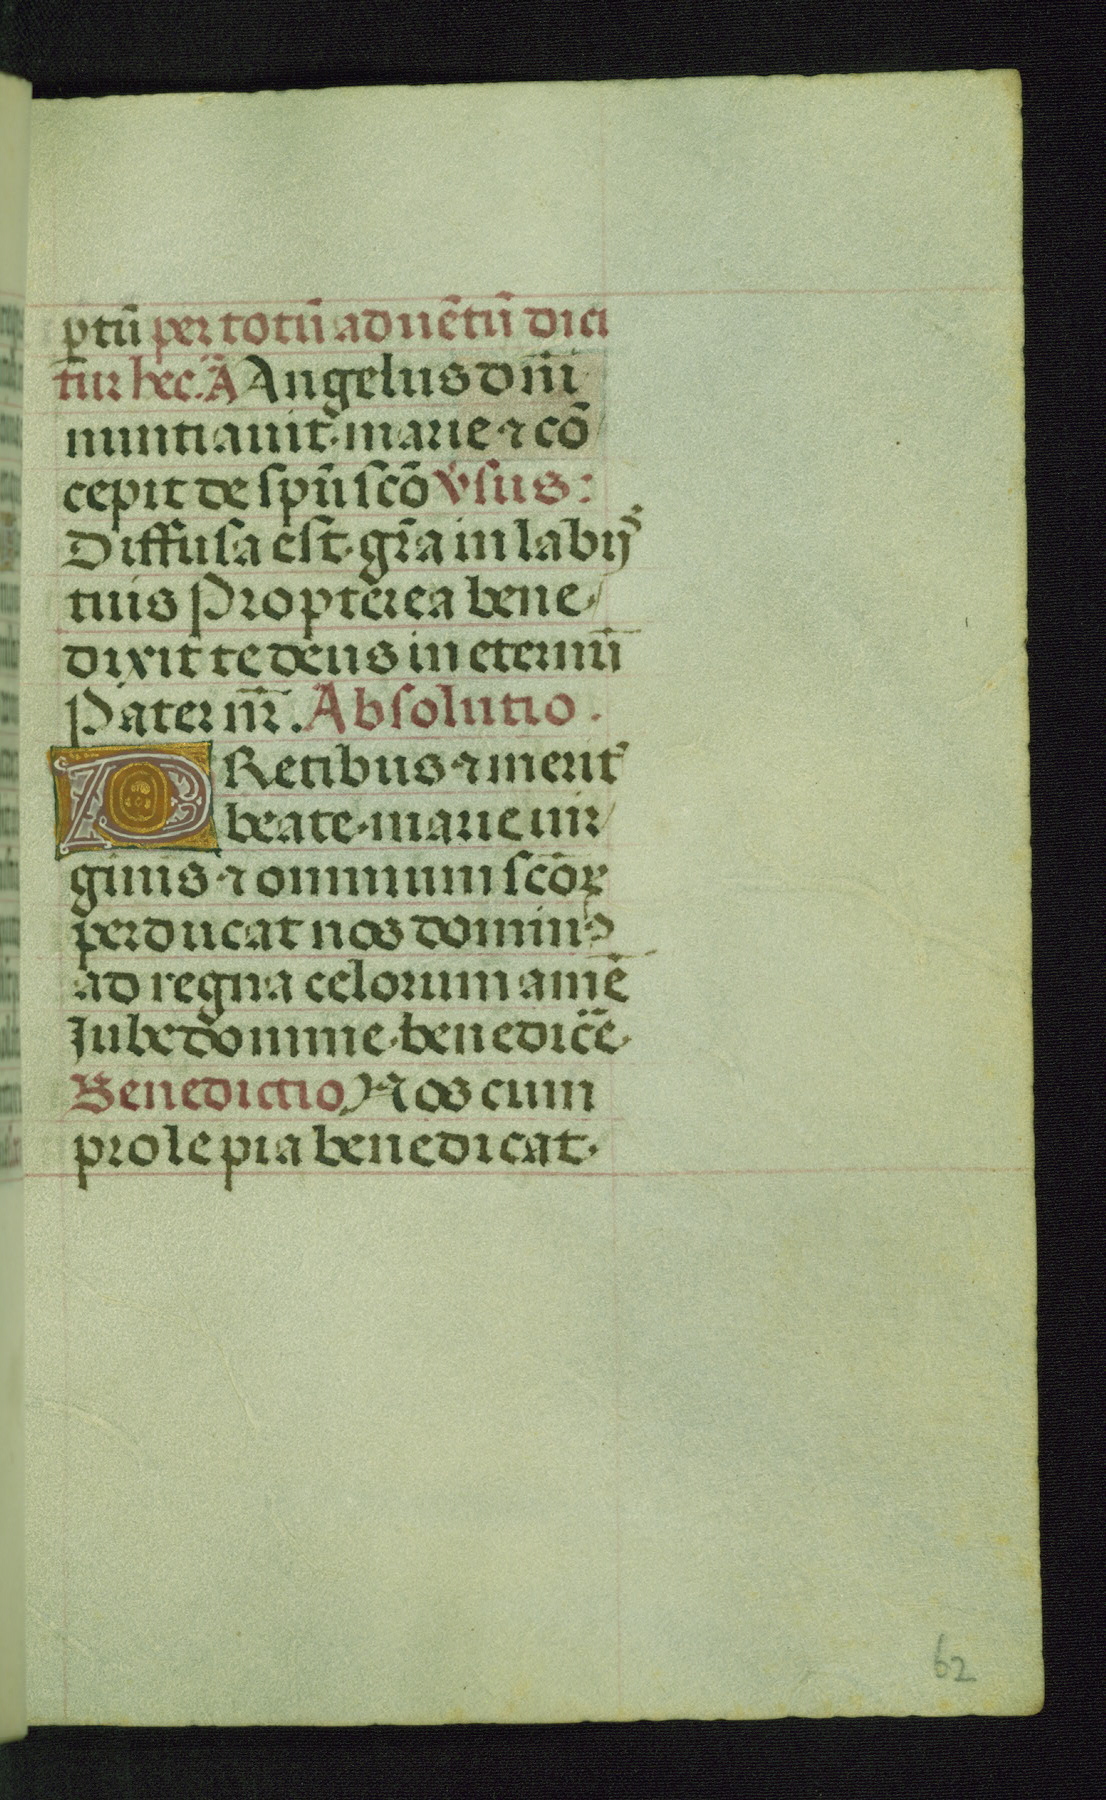 ꝑtū per totū aduētū dici
tur hec. A̅ Angelus dn̄i
nuntiauit marie ⁊ cō
cepit de spū scō v̓sus:
Diffusa est gr̄a in labijs
tuis Propterea bene
dixit te deus in eternū
Pater nr̄. Absolutio.
PRecibus ⁊ merit᷒
beate marie uir
ginis ⁊ omnium scōꝝ
perducat nos dominꝰ
ad regna celorum amē
Iube domine benedic̄e
Benedictio, Nos cum
prole pia benedicat.
62